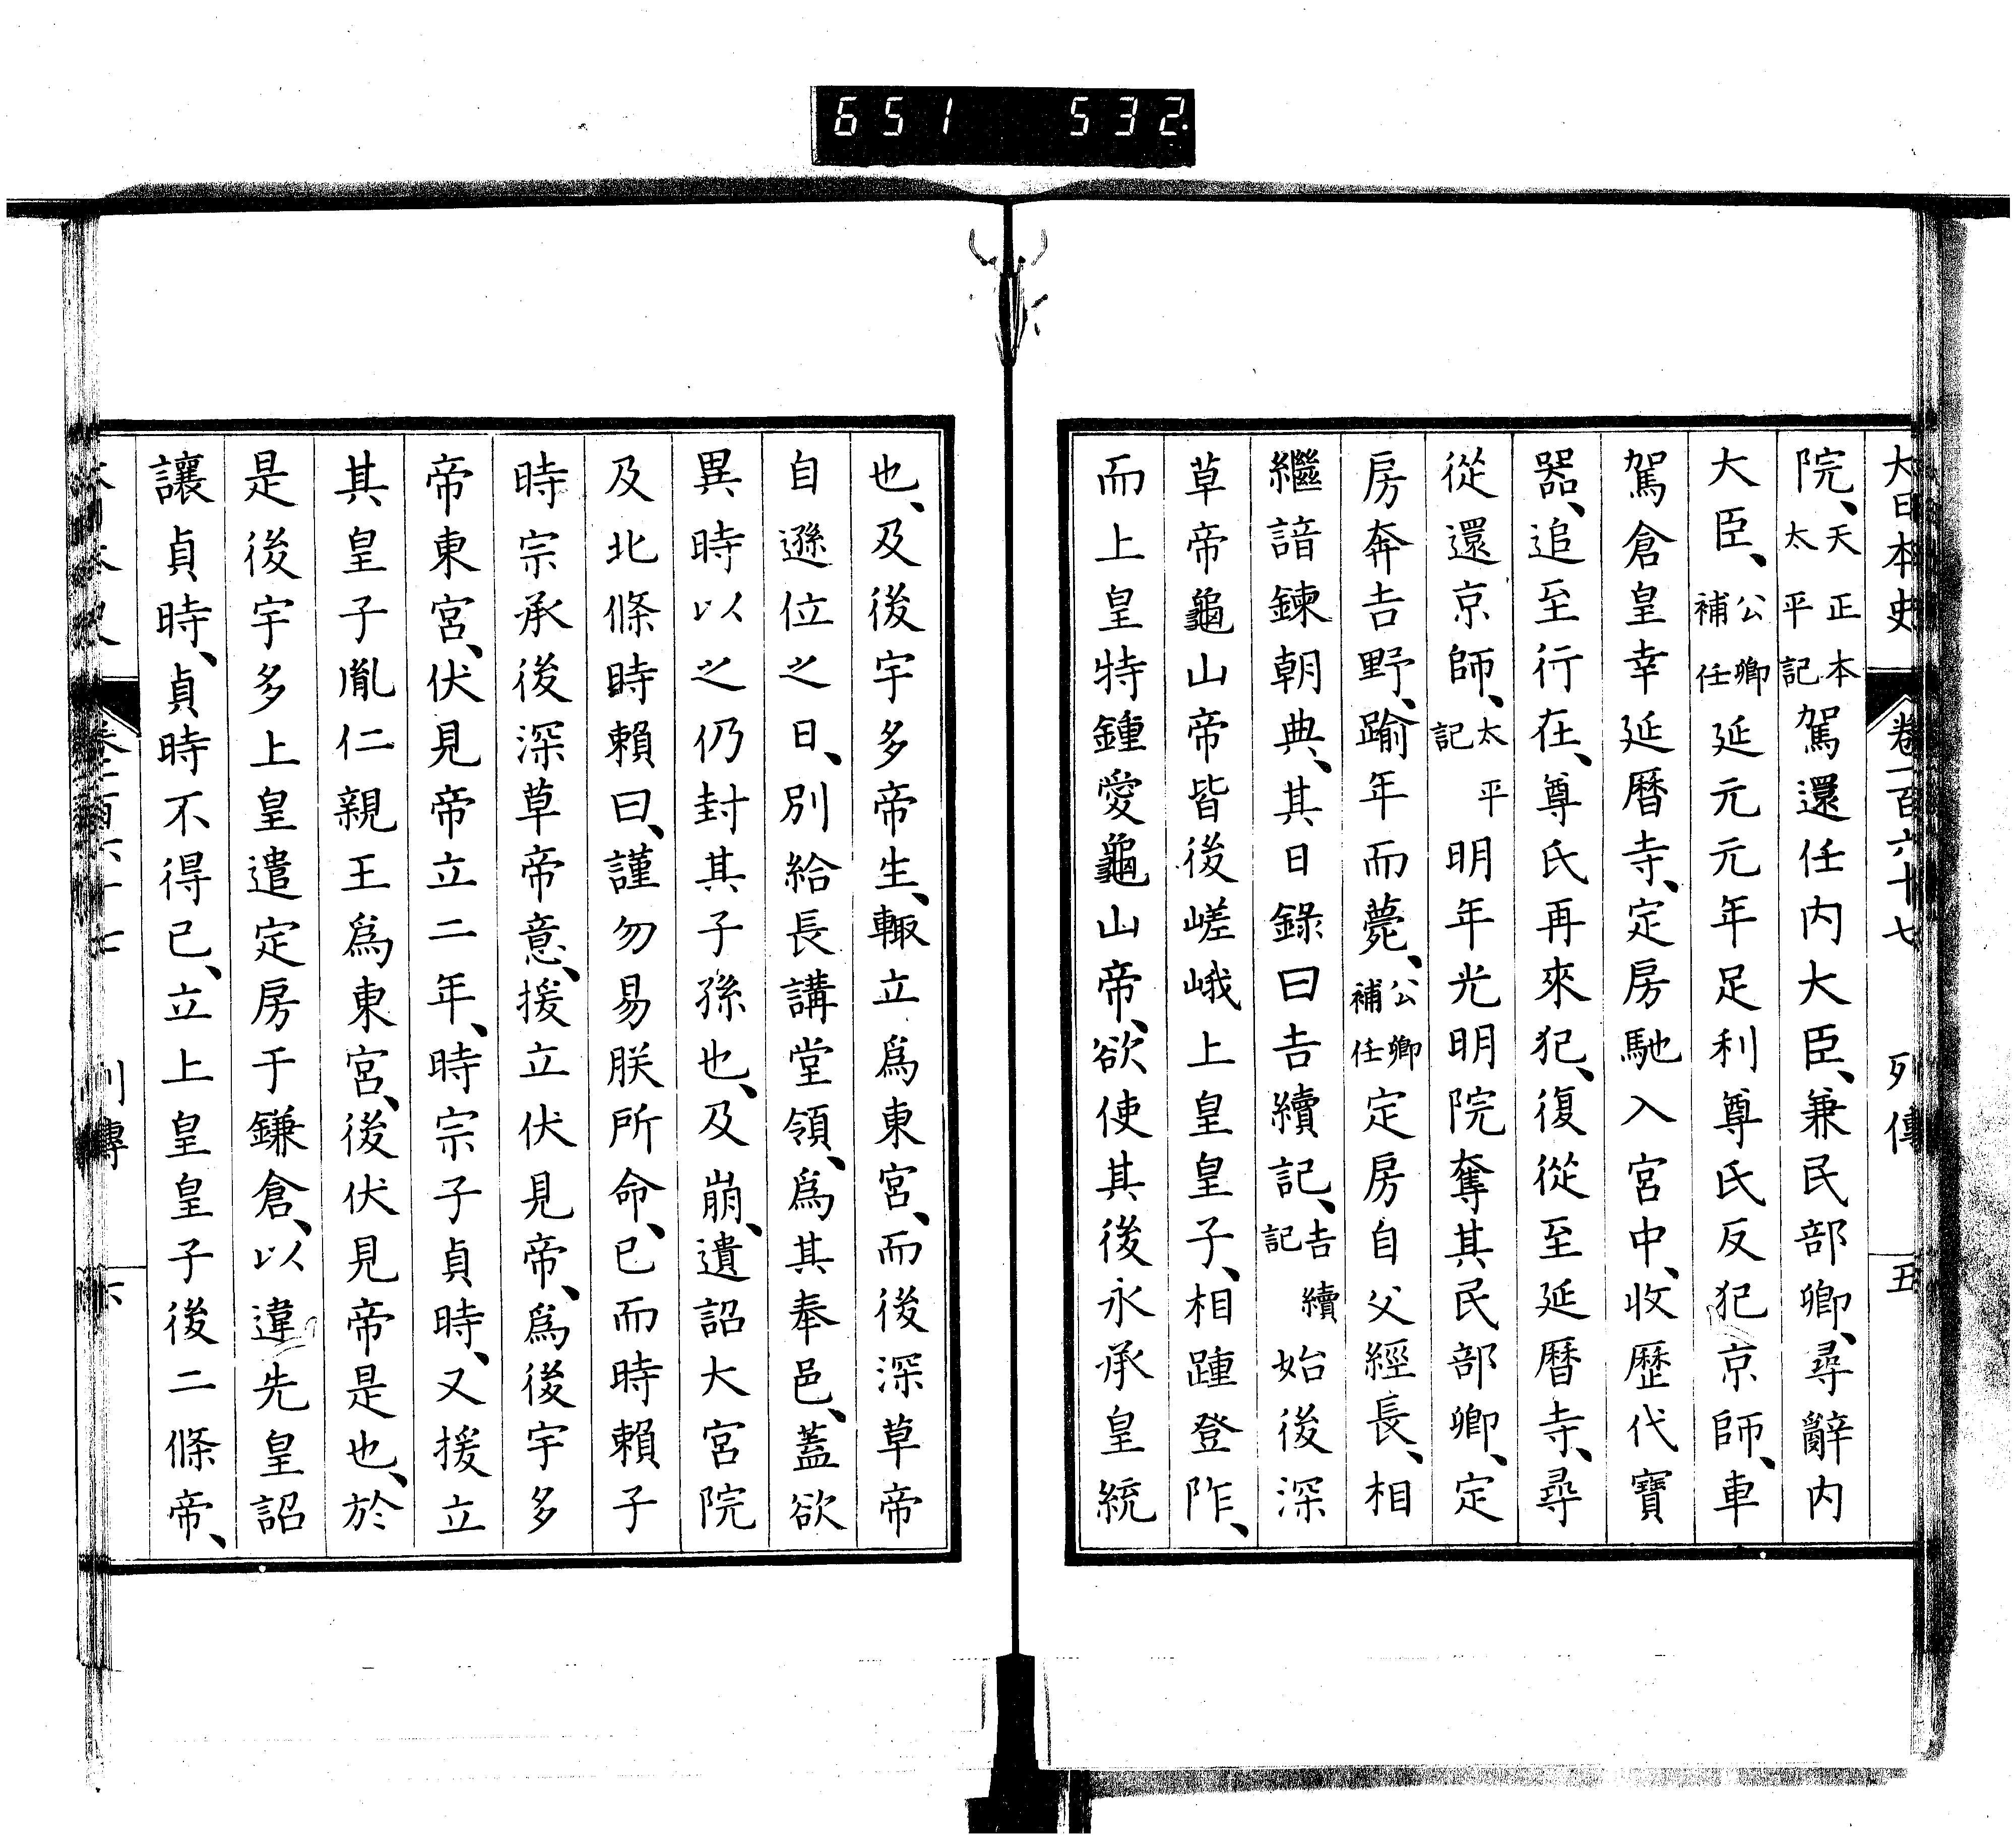 651 532
大日本史 卷一百六十七 列傳 五
院、天正本太平記駕還任内大臣、兼民部卿、尋辭内
大臣、公卿補任延元元年足利尊氏反犯京師、車
駕倉皇幸延暦寺、定房馳入宮中、收歴代寶
器、追至行在、尊氏再來犯、復從至延暦寺、尋
從還京師、太平記明年光明院奪其民部卿、定
房奔吉野、踰年而薨、公卿補任定房自父經長、相
繼諳錬朝典、其日錄曰吉續記、吉續記始後深
草帝龜山帝皆後嵯峨上皇皇子、相踵登阼、
而上皇特鍾愛龜山帝、欲使其後永承皇統
也、及後宇多帝生、輙立爲東宮、而後深草帝
自遜位之日、別給長講堂領、爲其奉邑、蓋欲
異時以之仍封其子孫也、及崩、遺詔大宮院
及北條時賴曰、謹勿易朕所命、已而時賴子
時宗承後深草帝意、援立伏見帝、爲後宇多
帝東宮、伏見帝立二年、時宗子貞時、又援立
其皇子胤仁親王爲東宮、後伏見帝是也、於
是後宇多上皇遣定房于鎌倉、以違先皇詔
讓貞時、貞時不得已、立上皇皇子後二條帝、
列傳 六